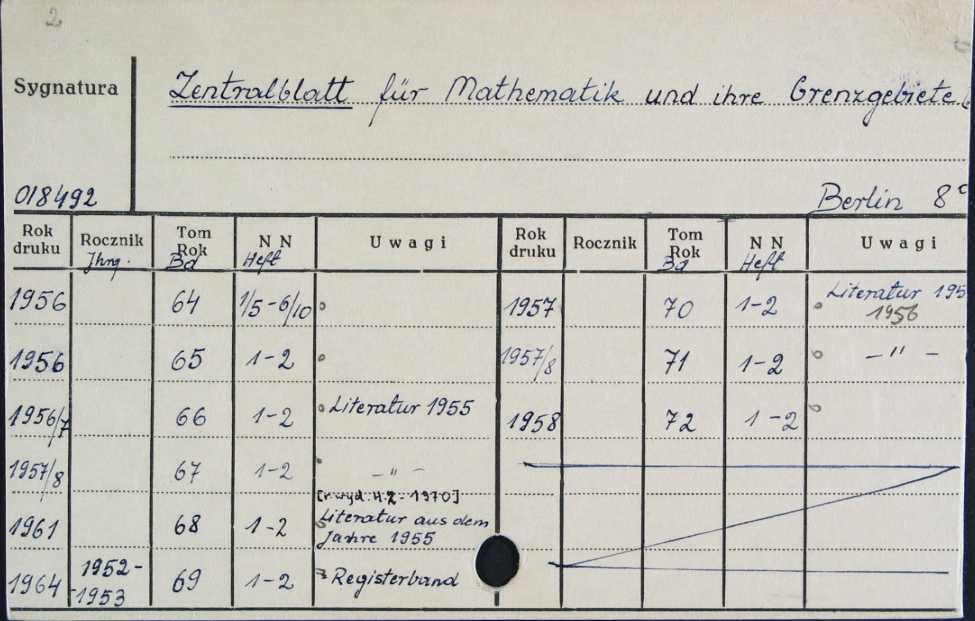 2
Sygnatura
Zentralblatt für Mathematik und ihre Grenzgebiete
018492
Berlin 8°
Rok druku Rocznik Jhrg. Tom Rok Bd NN Heft Uwagi Rok druku Rocznik Tom Rok Bd NN Heft Uwagi
1956 64 1/5-6/10 1957 70 1-2 Literatur 195
1956
1956 65 1-2 1957/8 71 1-2 — " —
1956/7 66 1-2 Literatur 1955 1958 72 1-2
1957/8 67 1-2 — " —
[r. wyd. H.2 - 1970]
1961 68 1-2 Literatur aus dem
Jahre 1955
1964 1952-
1953 69 1-2 Registerband